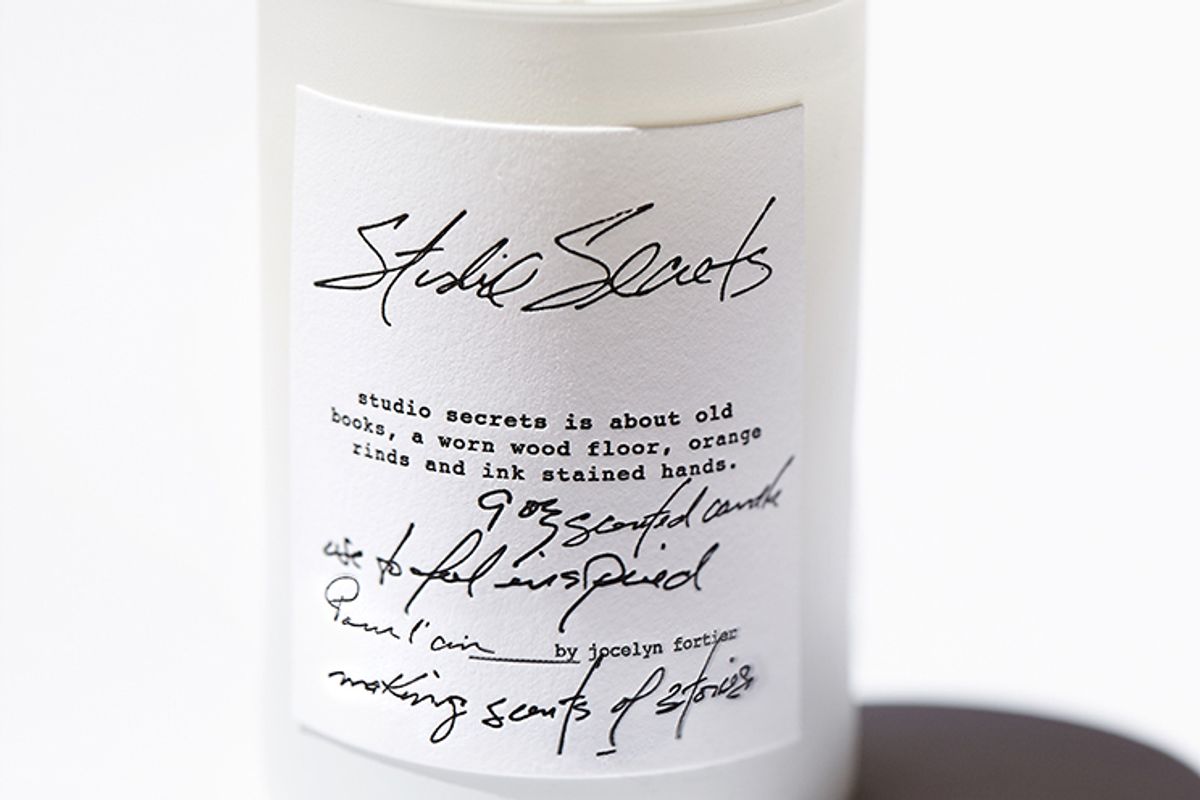 Studio Secrets
studio secrets is about old
books, a worn wood floor, orange
rinds and ink stained hands.
9 oz scented candle
use to feel inspired
Pour l'air by jocelyn fortier
making scents of stories